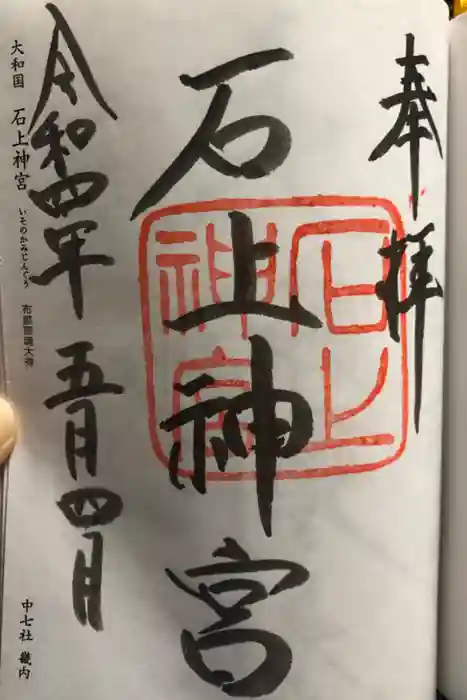 奉拝
石上神宮
石上
神宮
令和四年 五月四日
大和国 石上神宮 いそのかみじんぐう 布都御魂大神
中七社 畿内